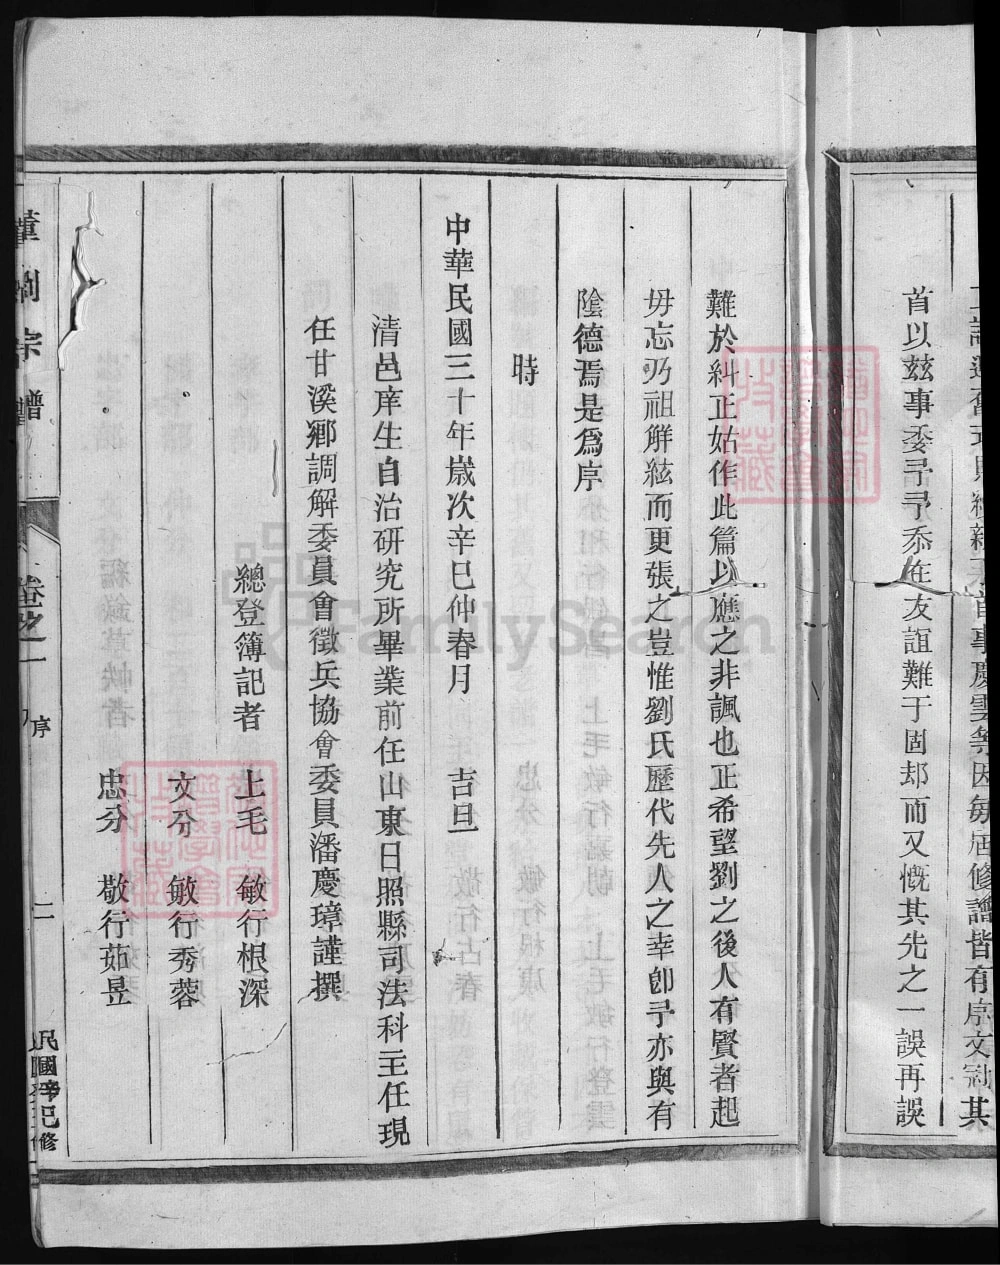 首事慶雲等因每屆修譜皆有序文冠其
首以茲事委予予忝在友誼難于固却而又慨其先之一誤再誤
難於糾正姑作此篇以應之非諷也正希望劉之後人有賢者起
毋忘乃祖解絃而更張之豈惟劉氏歷代先人之幸卽予亦與有
陰德焉是爲序
時
中華民國三十年歲次辛巳仲春月 吉旦
清邑庠生自治研究所畢業前任山東日照縣司法科主任現
任甘溪鄉調解委員會徵兵協會委員潘慶璋謹撰
總登簿記者 上毛 敏行根深
文分 敏行秀蓉
忠分 敬行茹昱
董劉宗譜
卷之一
序
二
民國辛巳修
FamilySearch